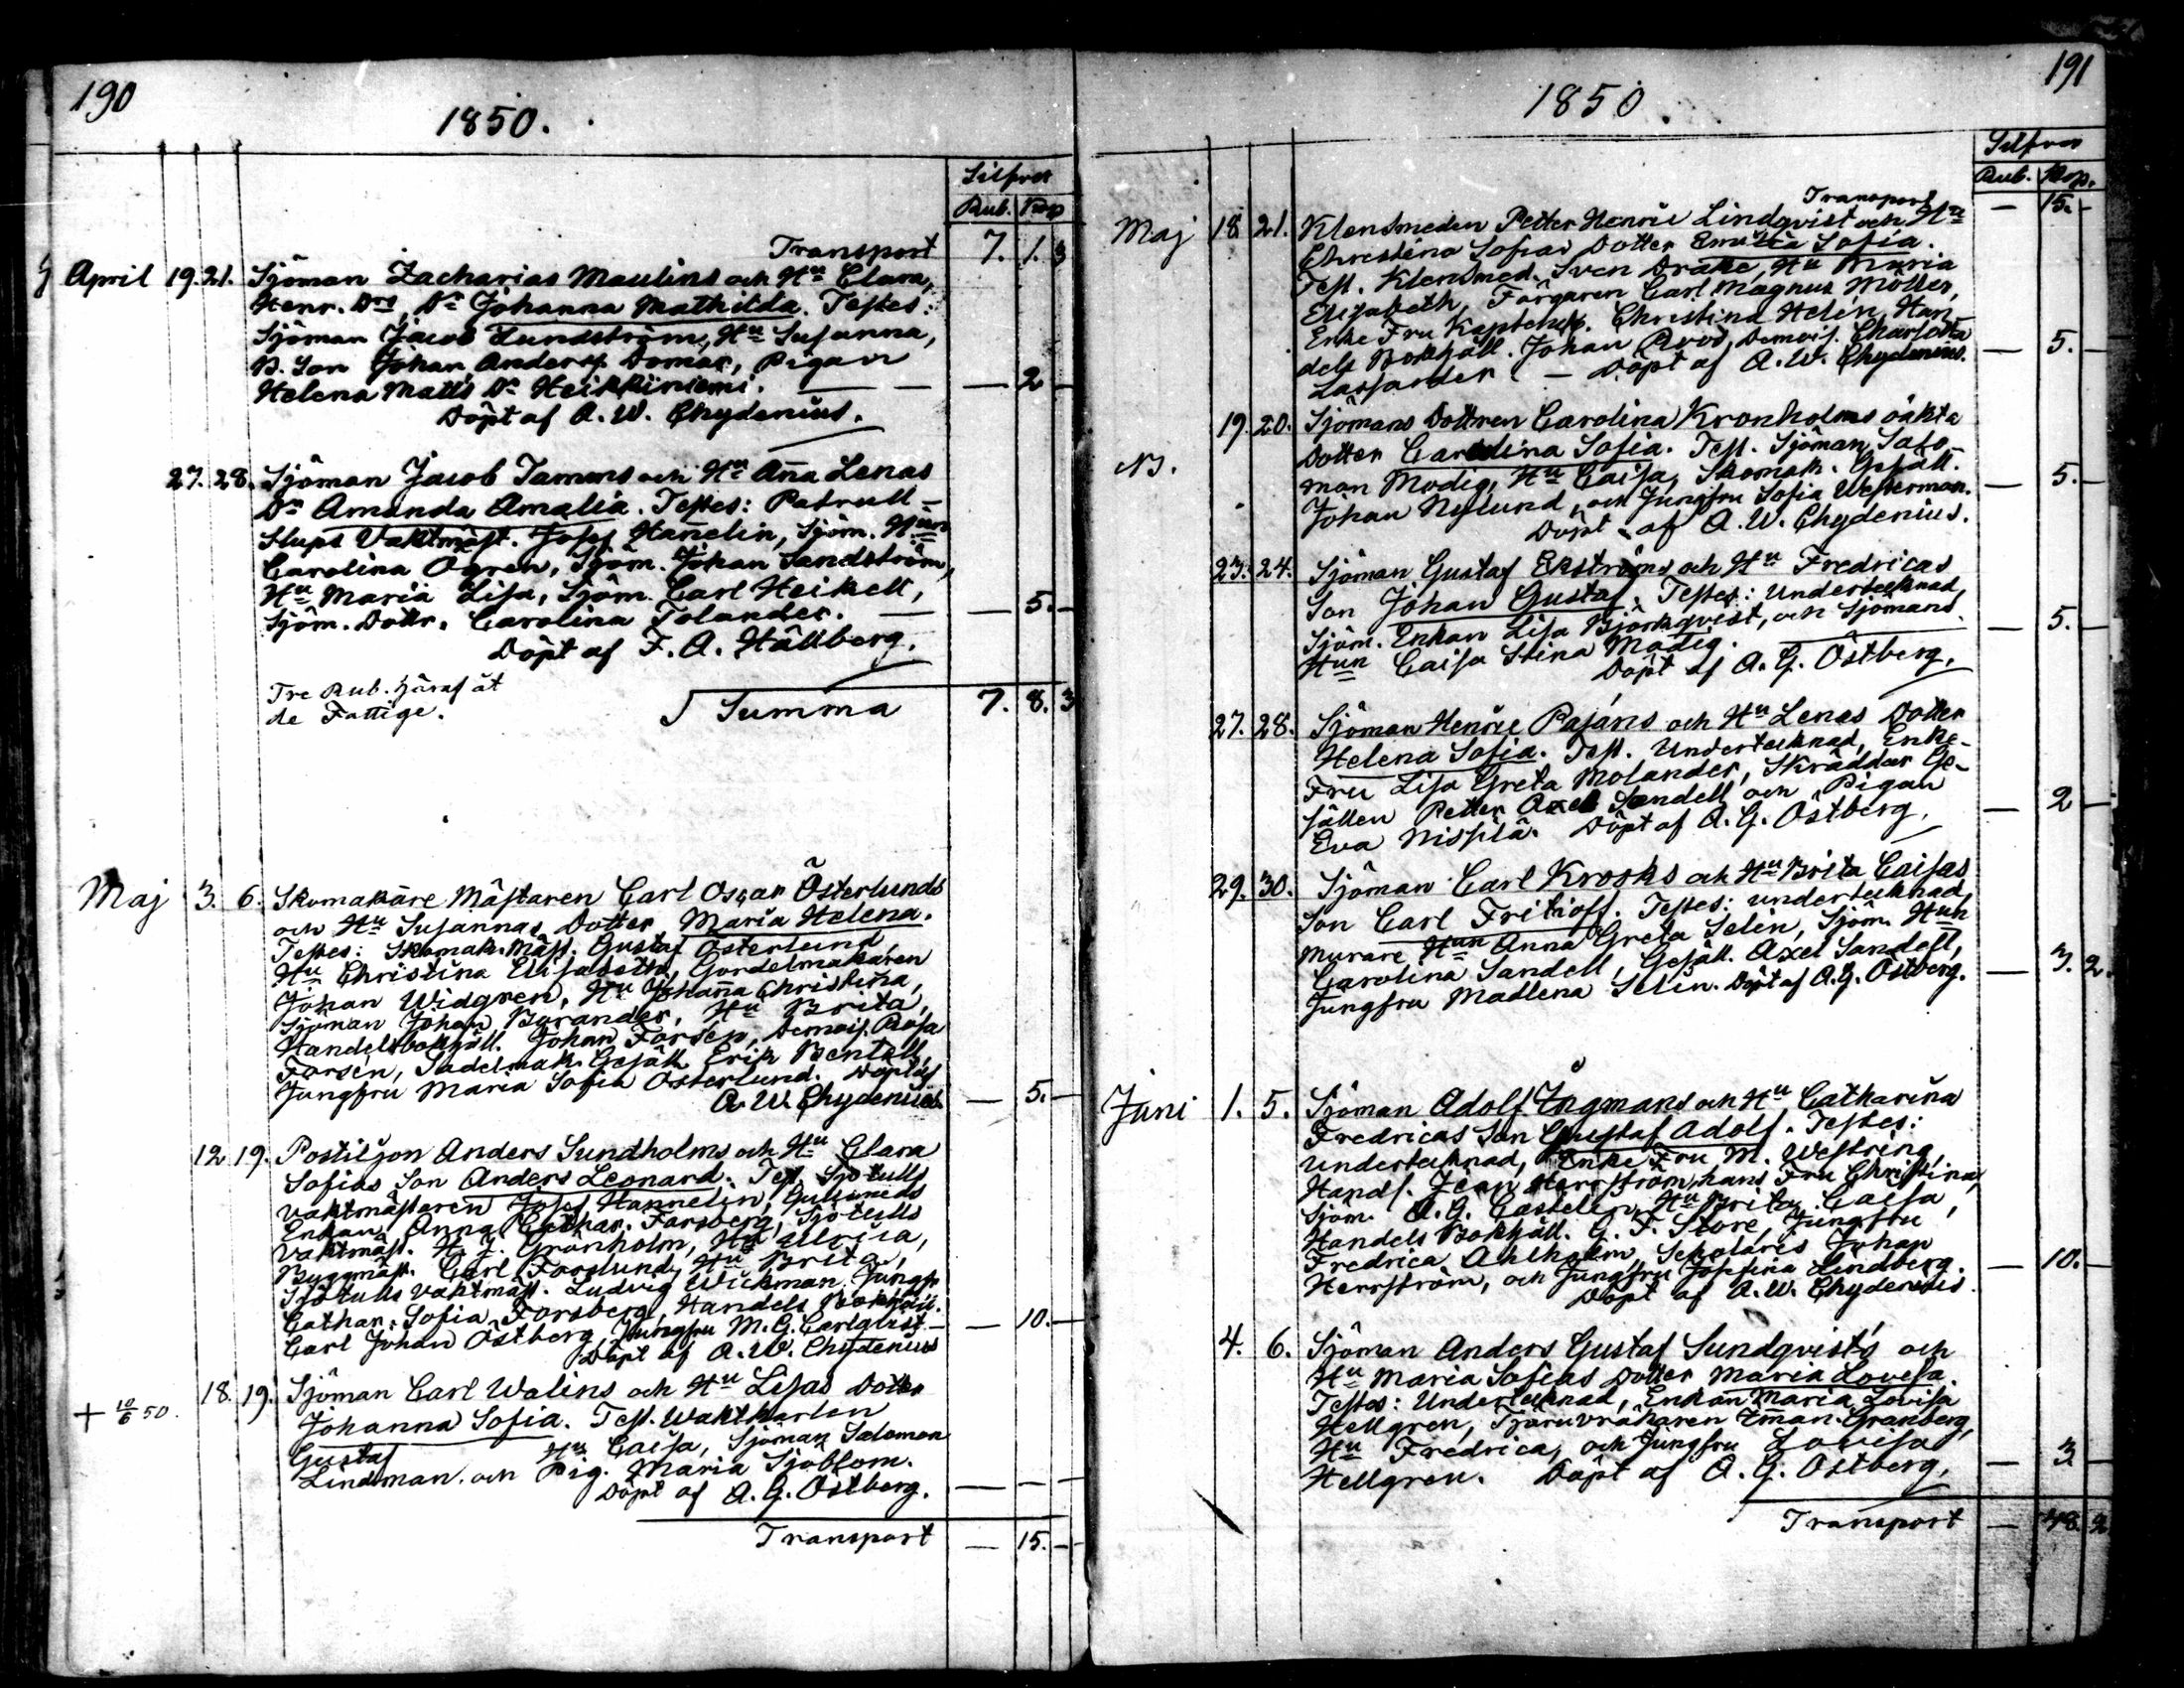 190
1850.
Silfver
Rub. Kop
Transport 7. 1. 3
April 19. 21. Sjöman Zacharias Maulins och Hu Clara,
Henr. Drs, Dr Johanna Mathilda. Testes:
Sjöman Jacob Lundström, Hu Susanna,
B. Son Johan Anderss. Domar, Pigan
Helena Matts Dr Heikkiniemi. — — — 2 —
Döpt af A. W. Chydenius.
27. 28. Sjöman Jacob Tamms och Hu Ana Lenas
Dr Amanda Amalia. Testes: Patrull-
Slups Vaktmäst. Josef Hanelin, Sjöm. Hun
Carolina Ögren, Sjöm. Johan Sandström,
Hu Maria Lisa, Sjöm. Carl Heikell,
Sjöm. Dottr. Carolina Tolander. — — 5. —
Döpt af F. A. Hällberg.
Tre Rub. häraf åt
de Fattige.
Summa 7. 8. 3
Maj 3. 6. Skomakare Mästaren Carl Oscar Österlunds
och Hu Susannas Dotter Maria Helena.
Testes: Skomak. Mäst. Gustaf Österlund,
Hu Christina Elisabeth, Gördelmakaren
Johan Widgren, Hu Johana Christina,
Sjöman Johan Borander, Hu Brita,
Handelsbokhåll. Johan Forsén, Demois. Rosa
Forsén, Sadelmak. Gesäll Erik Bentell,
Jungfru Maria Sofia Österlund. Döpt af
A. W. Chydenius. — 5. —
12 19. Postiljon Anders Sundholms och Hu Clara
Sofias Son Anders Leonard. Test. Sjötulls
vaktmästaren Josef Hannelin, Gulsmeds
Enkan Anna Cathar. Forsberg, Sjötulls
Vaktmäst. H. J. Grönholm, Hu Ulrica,
Byggmäst. Carl Forslund, Hu Brita,
Sjötulls vaktmäst. Ludvig Wickman, Jungfr
Cathar. Sofia Forsberg, Handels Bokhåll.
Carl Johan Östberg, Jungfru M. G. Carlqvist — — 10. —
Döpt af A. W. Chydenius
+ 10/6 50. 18. 19. Sjöman Carl Walins och Hu Lisas Dotter
Johanna Sofia. Test. Waktkarlen
Gustaf Hu Caisa, Sjöman Salomon
Lindman och Pig. Maria Sjöblom.
Döpt af A. G. Östberg. — — —
Transport — 15. —
191
1850.
Silfver
Rub. Kop.
Transport — 15. —
Maj 18 21. Klensmeden Petter Henric Lindqvist och Hu
Christina Sofias Dotter Emilia Sofia.
Test. Klensmed. Sven Drake, Hu Maria
Elisabeth, Färgaren Carl Magnus Möller,
Enke Fru Kaptensk. Christina Helén, Han-
dels Bokhåll. Johan Roos, Demois. Charlotta
Lassander. — Döpt af A. W. Chydenius. — 5. —
N. 19. 20. Sjömans Dottren Carolina Kronholms oäkta
Dotter Carolina Sofia. Test. Sjöman Salo-
mon Modig, Hu Caisa, Skomak. Gesäll.
Johan Nylund, och Jungfru Sofia Westerman. — 5. —
Döpt af A. W. Chydenius.
23. 24. Sjöman Gustaf Ekströms och Hu Fredricas
Son Johan Gustaf. Testes: Undertecknad,
Sjöm. Enkan Lisa Björkqvist, och Sjömans — 5. —
Hun Caisa Stina Modig.
Döpt af A. G. Östberg.
27. 28. Sjöman Henric Pajáns och Hu Lenas Dotter
Helena Sofia. Test. Undertecknad, Enke-
Fru Lisa Greta Molander, Skräddar Ge-
sällen Petter Axel Sandell och Pigan — 2 —
Eva Nissilä. Döpt af A. G. Östberg.
29. 30. Sjöman Carl Krooks och Hu Brita Caisas
Son Carl Frithioff. Testes: undertecknad,
Murare Hun Anna Greta Selin, Sjöm. Hun
Carolina Sandell, Gesäll. Axel Sandell,
Jungfru Madlena Selin. Döpt af A. G. Östberg. — 3. 2.
Juni 1. 5. Sjöman Adolf Ingmans och Hu Catharina
Fredricas Son Gustaf Adolf. Testes:
Undertecknad, Enke Fru M. Westring,
Handl. Jean Herrström, hans Fru Christina,
Sjöm. A. G. Castelin, Hu Brita Caisa,
Handels Bokhåll. G. F. Store, Jungfru
Fredrica Ahlholm, Scholaris Johan
Herrström, och Jungfru Josefina Lindberg. — 10. —
Döpt af A. W. Chydenius.
4. 6. Sjöman Anders Gustaf Sundqvists och
Hu Maria Sofias Dotter Maria Lovisa.
Testes: Undertecknad, Enkan Maria Lovisa
Hellgren, Tjäruvräkaren Eman. Granberg,
Hu Fredrica, och Jungfru Lovisa
Hellgren. Döpt af A. G. Östberg. — 3 —
Transport — 48. 2